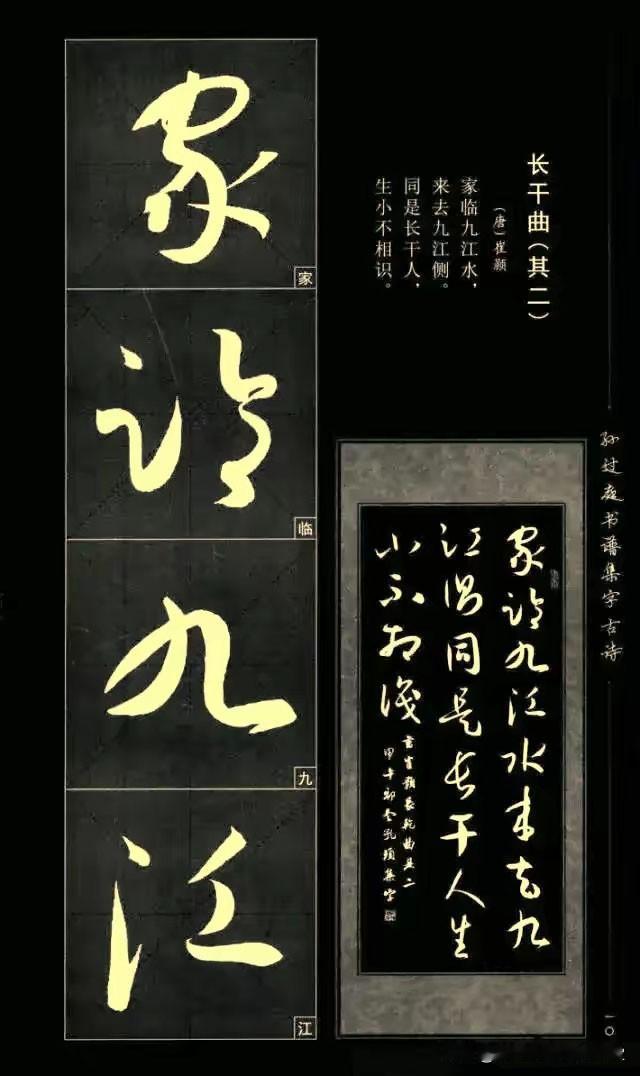 孙过庭书谱集字古诗
一〇
长干曲（其二）
（唐）崔颢
家临九江水，
来去九江侧。
同是长干人，
生小不相识。
家临九江水来去九
江侧同是长干人生
小不相识
书崔颢长干曲其二
甲午 集字
家
家
临
临
九
九
江
江